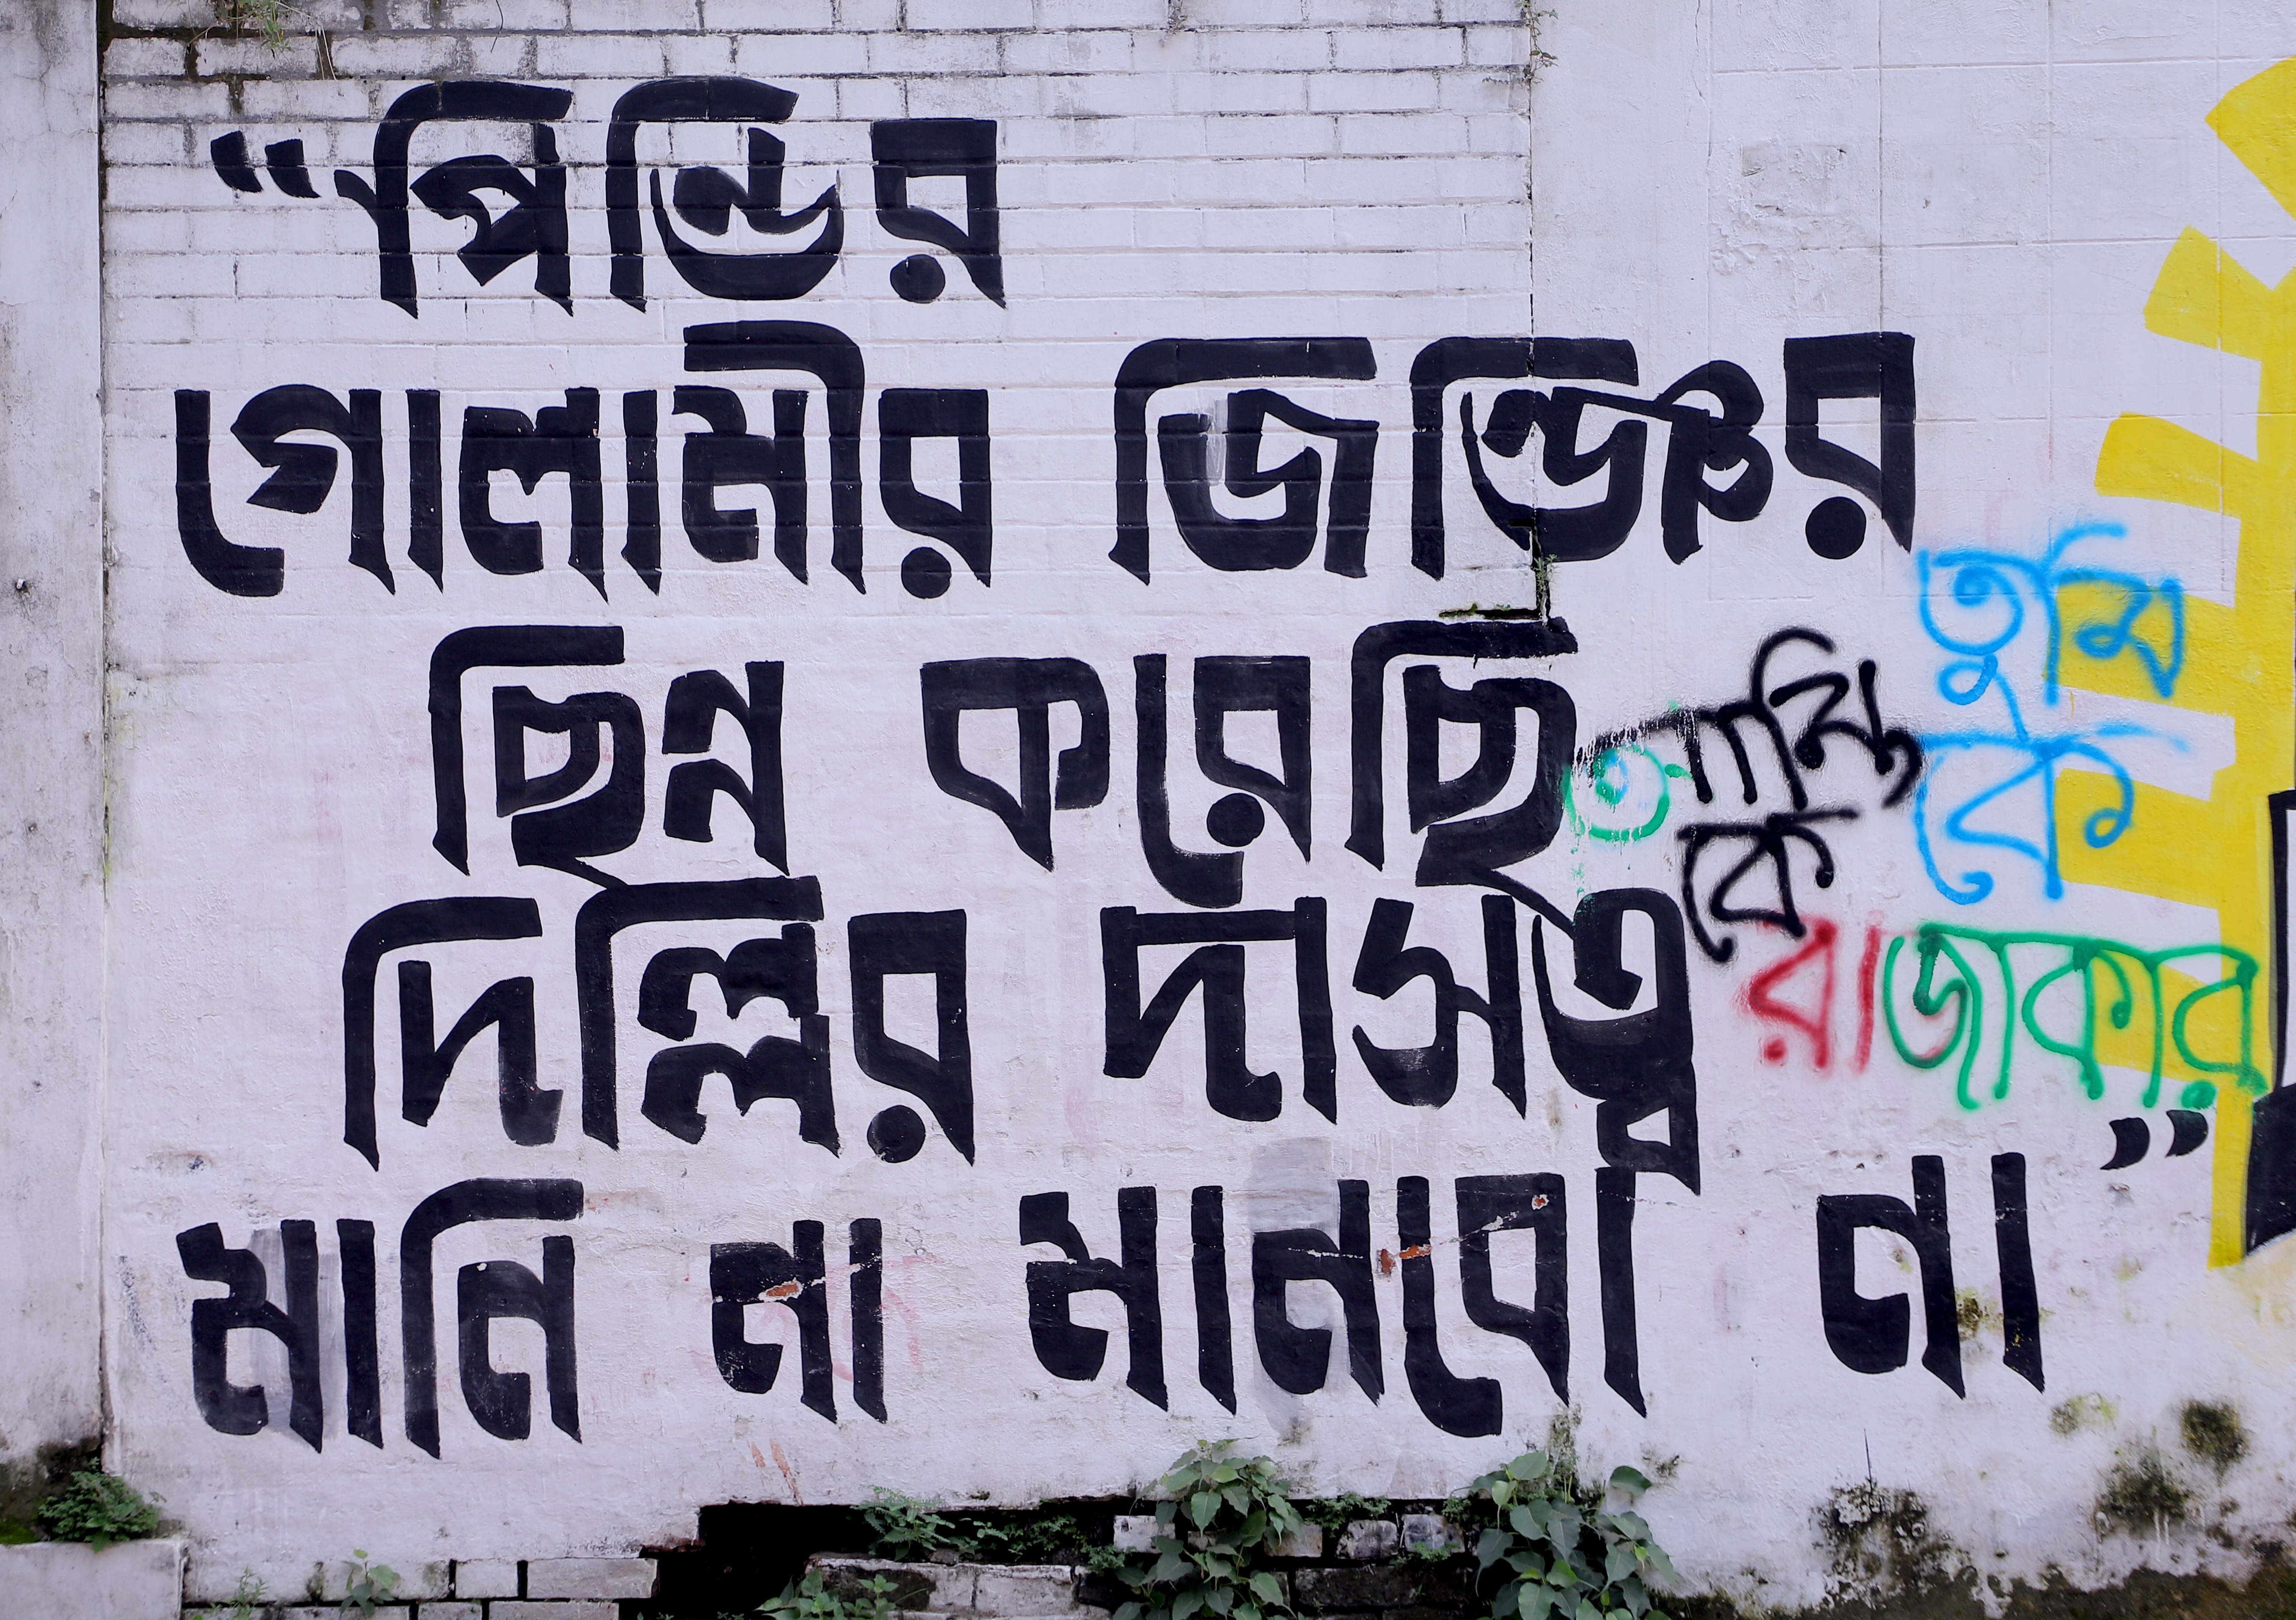 “পিন্ডির
গোলামীর জিন্জির
ছিন্ন করেছি
দিল্লির দাসত্ব
মানি না মানবো না”
তুমি
কে
আমি
কে
রাজাকার